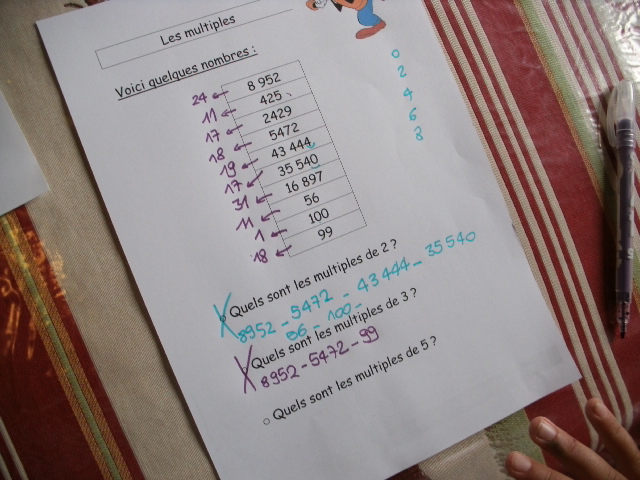 Les multiples
Voici quelques nombres :
24 ← 8 952
11 ← 425
17 ← 2429
18 ← 5472
19 ← 43 444
17 ← 35 540
31 ← 16 897
11 ← 56
1 ← 100
18 ← 99
0
2
4
6
8
Quels sont les multiples de 2 ?
8952 - 5472 - 43444 - 35540
56 - 100 -
Quels sont les multiples de 3 ?
8952 - 5472 - 99
○ Quels sont les multiples de 5 ?